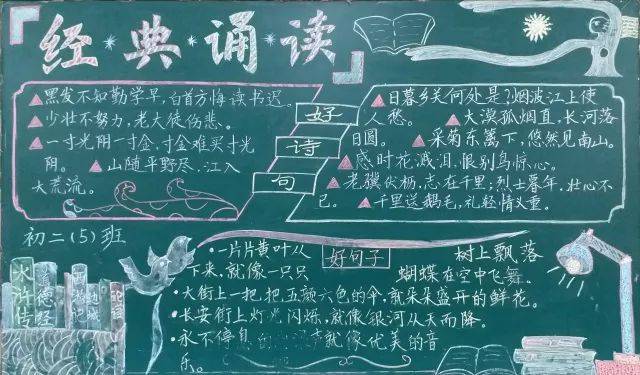 经典诵读
▲黑发不知勤学早,白首方悔读书迟。
▲少壮不努力,老大徒伤悲。
▲一寸光阴一寸金,寸金难买寸光
阴。 ▲山随平野尽,江入
大荒流。
好
诗
句
▲日暮乡关何处是?烟波江上使
人愁。 ▲大漠孤烟直,长河落
日圆。 ▲采菊东篱下,悠然见南山。
▲感时花溅泪,恨别鸟惊心。
▲老骥伏枥,志在千里;烈士暮年,壮心不
已。 ▲千里送鹅毛,礼轻情义重。
初二(5)班
水浒传
道德经
西游记
边城
论语
好句子
·一片片黄叶从 树上飘落
下来,就像一只只 蝴蝶在空中飞舞。
·大街上一把把五颜六色的伞,就朵朵盛开的鲜花。
·长安街上灯光闪烁,就像银河从天而降。
·永不停息的 声就像优美的音
乐。